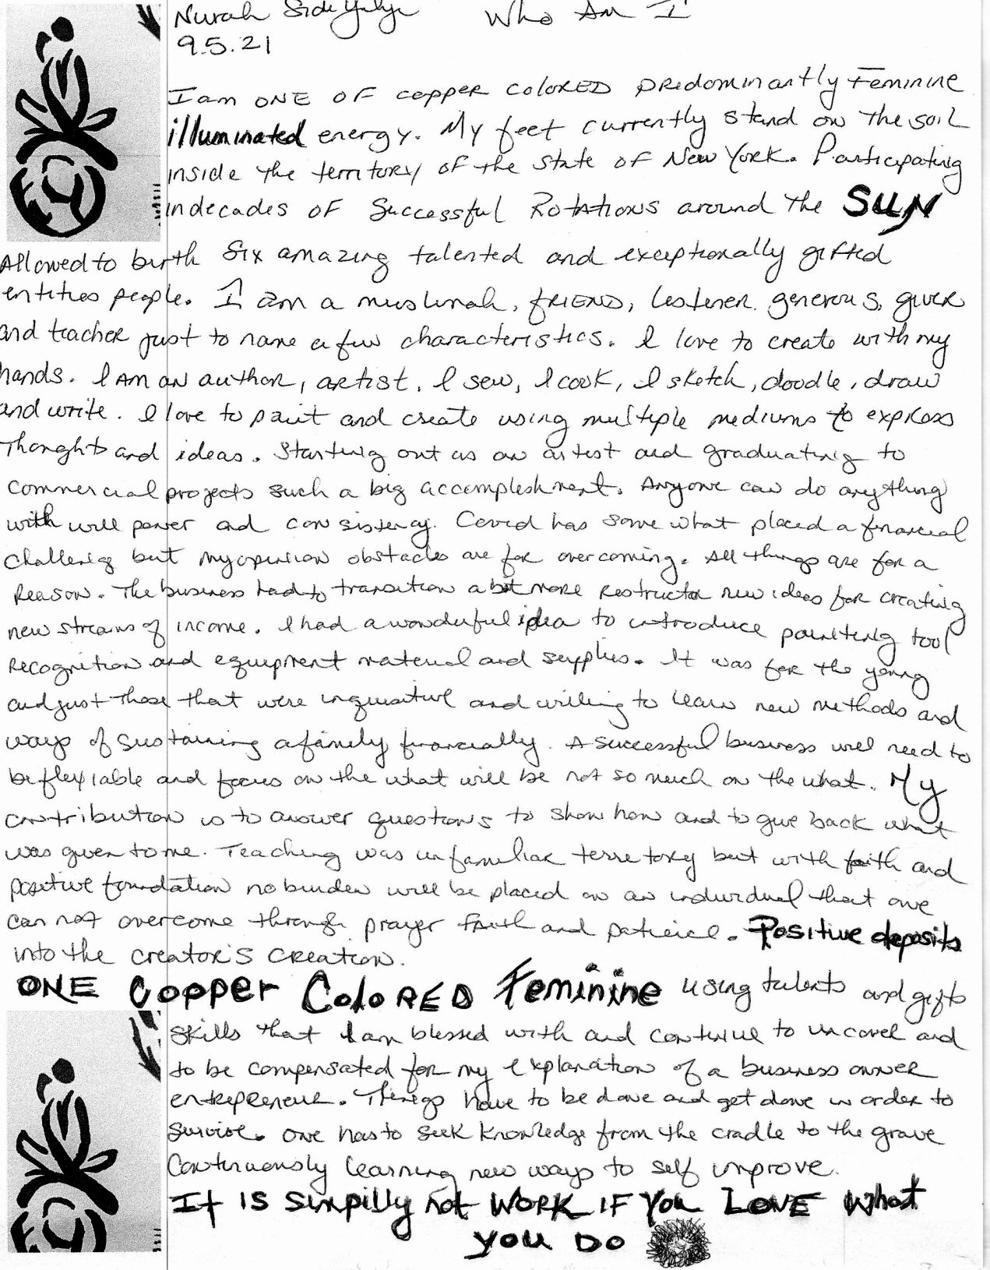 Nurah Who Am I
9.5.21
I am ONE OF copper colored predominantly Feminine
illuminated energy. My feet currently stand on the soil
inside the territory of the state of New York. Participating
in decades of Successful Rotations around the SUN
Allowed to birth six amazing talented and exceptionally gifted
entities people. I am a muslimah, FRIEND, listener, generous, giver
and teacher just to name a few characteristics. I love to create with my
hands. I AM an author, artist, I sew, I cook, I sketch, doodle, draw
and write. I love to paint and create using multiple mediums to express
thoughts and ideas. Starting out as an artist and graduating to
commercial projects such a big accomplishment. Anyone can do anything
with will power and consistency. Covid has some what placed a financial
challenge but my opinion obstacles are for overcoming. All things are for a
Reason. The business had to transition a bit more restructor new ideas for creating
new streams of income. I had a wonderful idea to introduce painting tool
Recognition and equipment material and supplies. It was for the young
and just those that were inquisitive and willing to learn new methods and
ways of sustaining a family financially. A successful business will need to
be flexiable and focus on the what will be not so much on the what. My
contribution is to answer questions to show how and to give back what
was given to me. Teaching was unfamiliar territory but with faith and
positive foundation no burden will be placed on an individual that one
can not overcome through prayer faith and patience. Positive deposits
into the creator's creation.
ONE Copper Colored Feminine using talents and gifts
skills that I am blessed with and continue to uncover and
to be compensated for my explanation of a business owner
entrepreneur. Things have to be done and get done in order to
survive. One has to seek knowledge from the cradle to the grave
Continuously learning new ways to self improve.
It is simpilly not work if you Love what
you Do